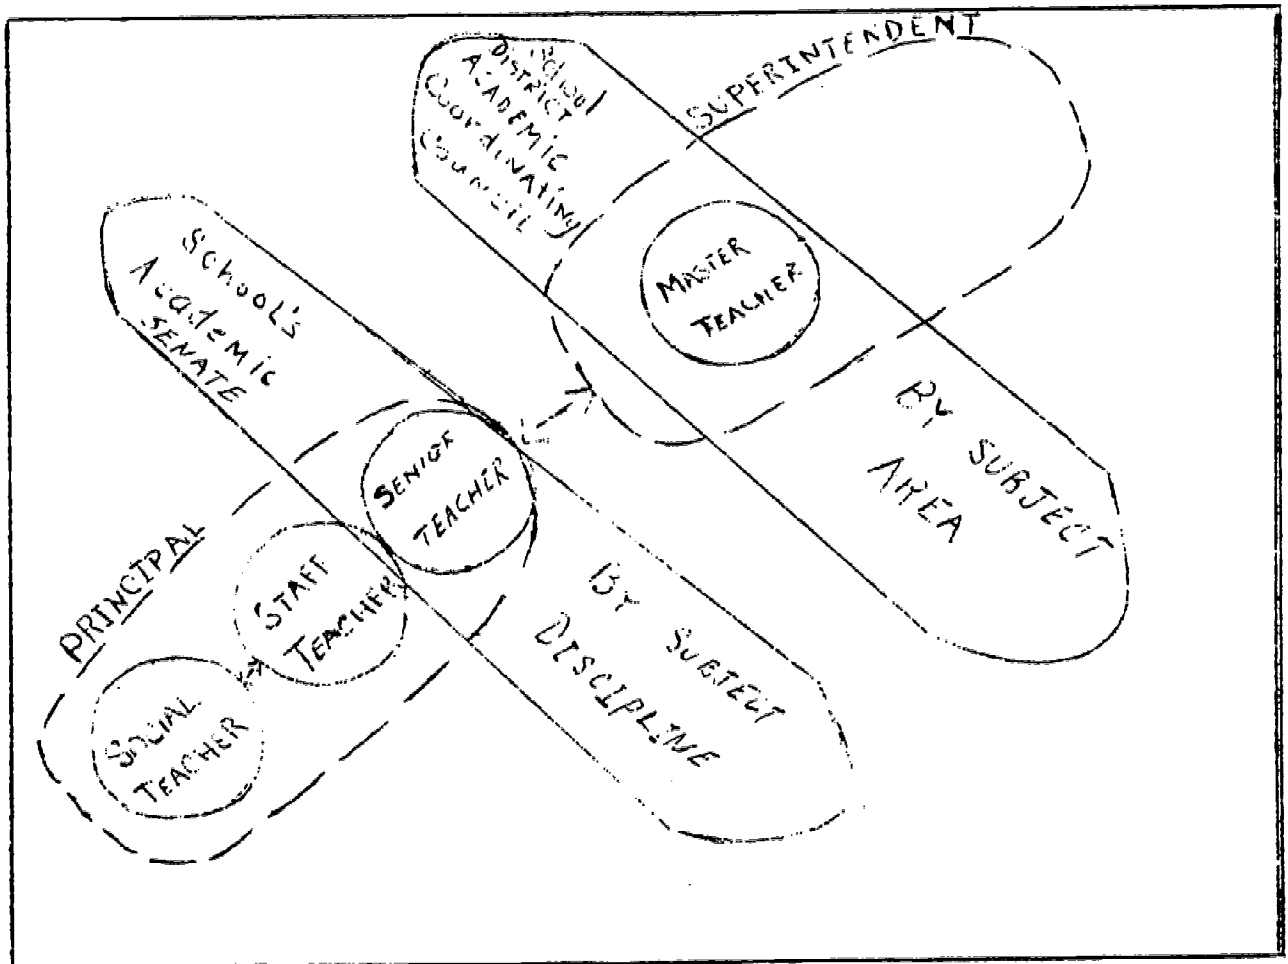 School
DISTRICT
ACADEMIC
Coordinating
Council
SUPERINTENDENT
MASTER
TEACHER
BY SUBJECT
AREA
School's
Academic
SENATE
SENIOR
TEACHER
BY SUBJECT
DISCIPLINE
PRINCIPAL
STAFF
TEACHER
SOCIAL
TEACHER